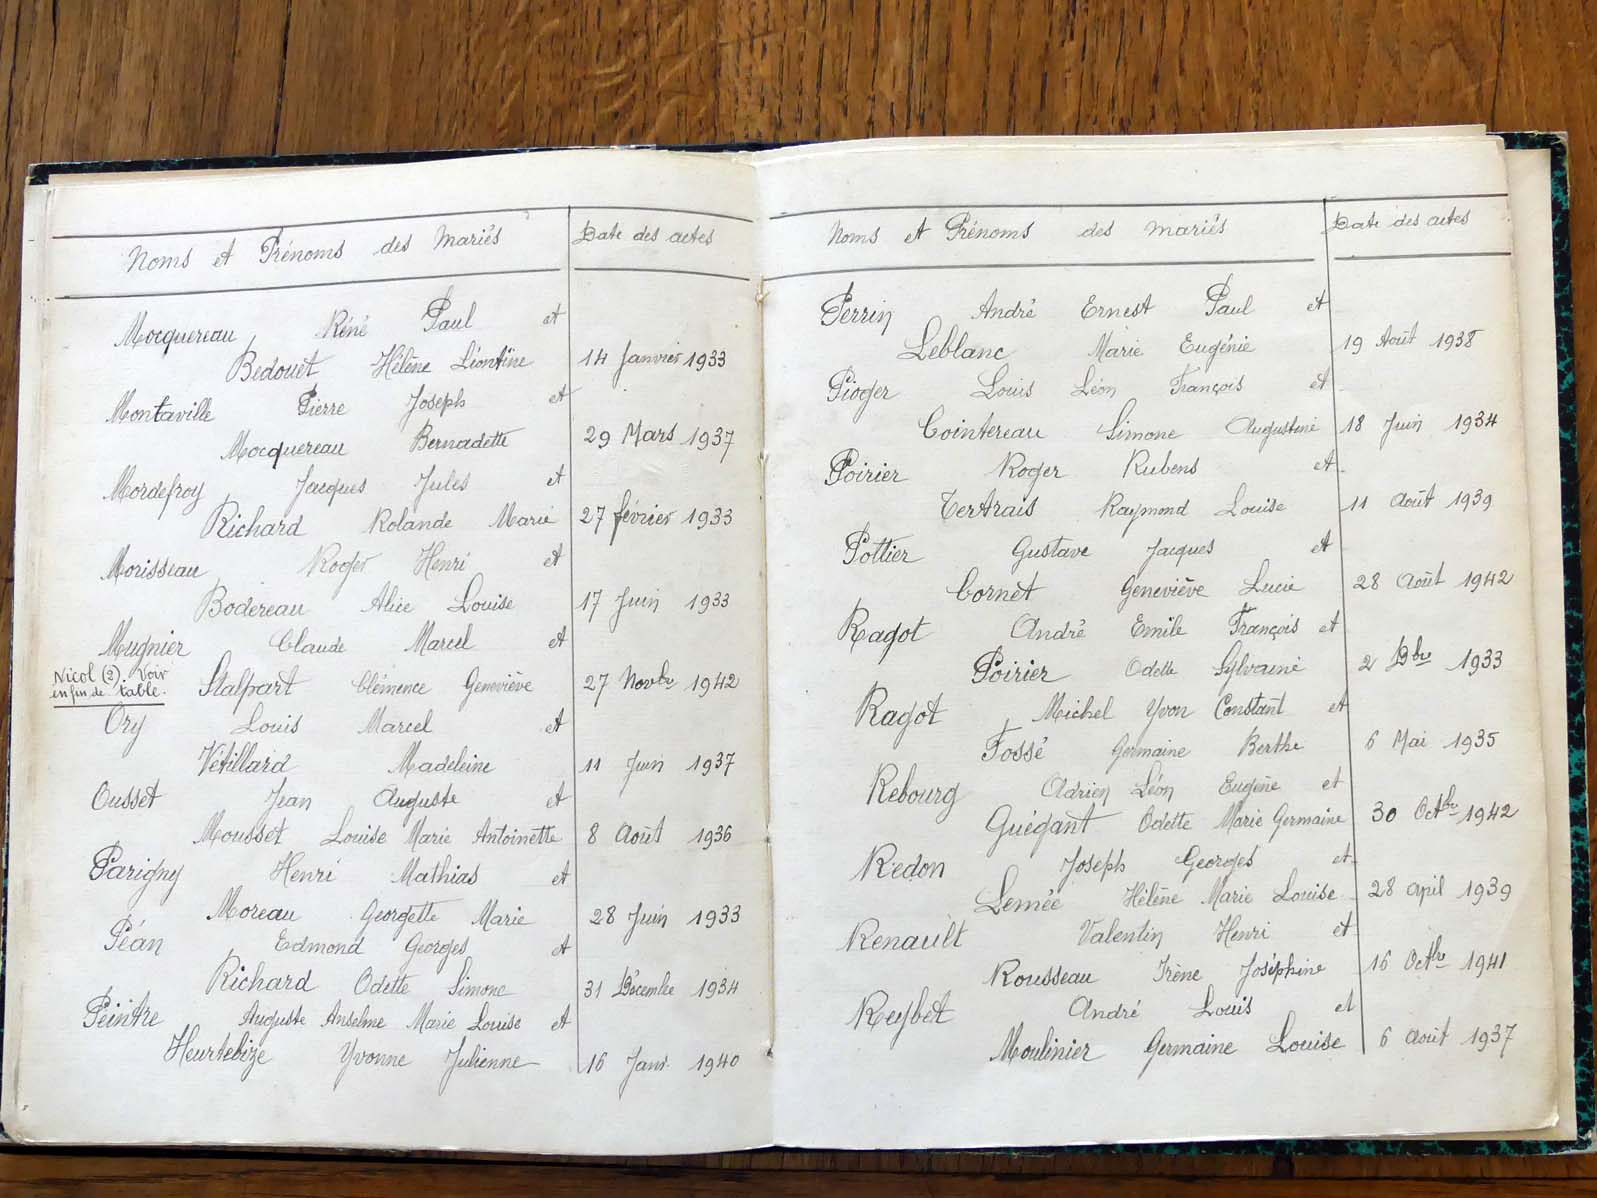 Noms et Prénoms des Mariés Date des actes
Mocquereau Réné Paul et
Bedouet Hélène Léontine 14 Janvier 1933
Montaville Pierre Joseph et
Mocquereau Bernadette 29 Mars 1937
Mordefroy Jacques Jules et
Richard Rolande Marie 27 février 1933
Morisseau Roger Henri et
Bodereau Alice Louise 17 Juin 1933
Mugnier Claude Marcel et
Nicol (2). Voir
en fin de table.
Stalpart Clémence Geneviève 27 Novbre 1942
Ory Louis Marcel et
Vétillard Madeleine 11 Juin 1937
Ousset Jean Auguste et
Mousset Louise Marie Antoinette 8 Août 1936
Parigny Henri Mathias et
Moreau Georgette Marie 28 Juin 1933
Péan Edmond Georges et
Richard Odette Simone 31 Décembre 1934
Peintre Auguste Anselme Marie Louise et
Heurtebize Yvonne Julienne 16 Janv. 1940
Noms et Prénoms des mariés Date des actes
Perrin André Ernest Paul et
Leblanc Marie Eugénie 19 Août 1938
Pioger Louis Léon François et
Cointereau Simone Augustine 18 Juin 1934
Poirier Roger Rubens et
Tertrais Raymond Louise 11 Août 1939
Pottier Gustave Jacques et
Cornet Geneviève Lucie 28 Août 1942
Ragot André Emile François et
Poirier Odette Sylvaine 2 Dbre 1933
Ragot Michel Yvon Constant et
Fossé Germaine Berthe 6 Mai 1935
Rebourg Adrien Léon Eugène et
Guégant Odette Marie Germaine 30 Octbre 1942
Redon Joseph Georges et
Lemée Hélène Marie Louise 28 April 1939
Renault Valentin Henri et
Rousseau Irène Joséphine 16 Octbre 1941
Reybet André Louis et
Moulinier Germaine Louise 6 Août 1937